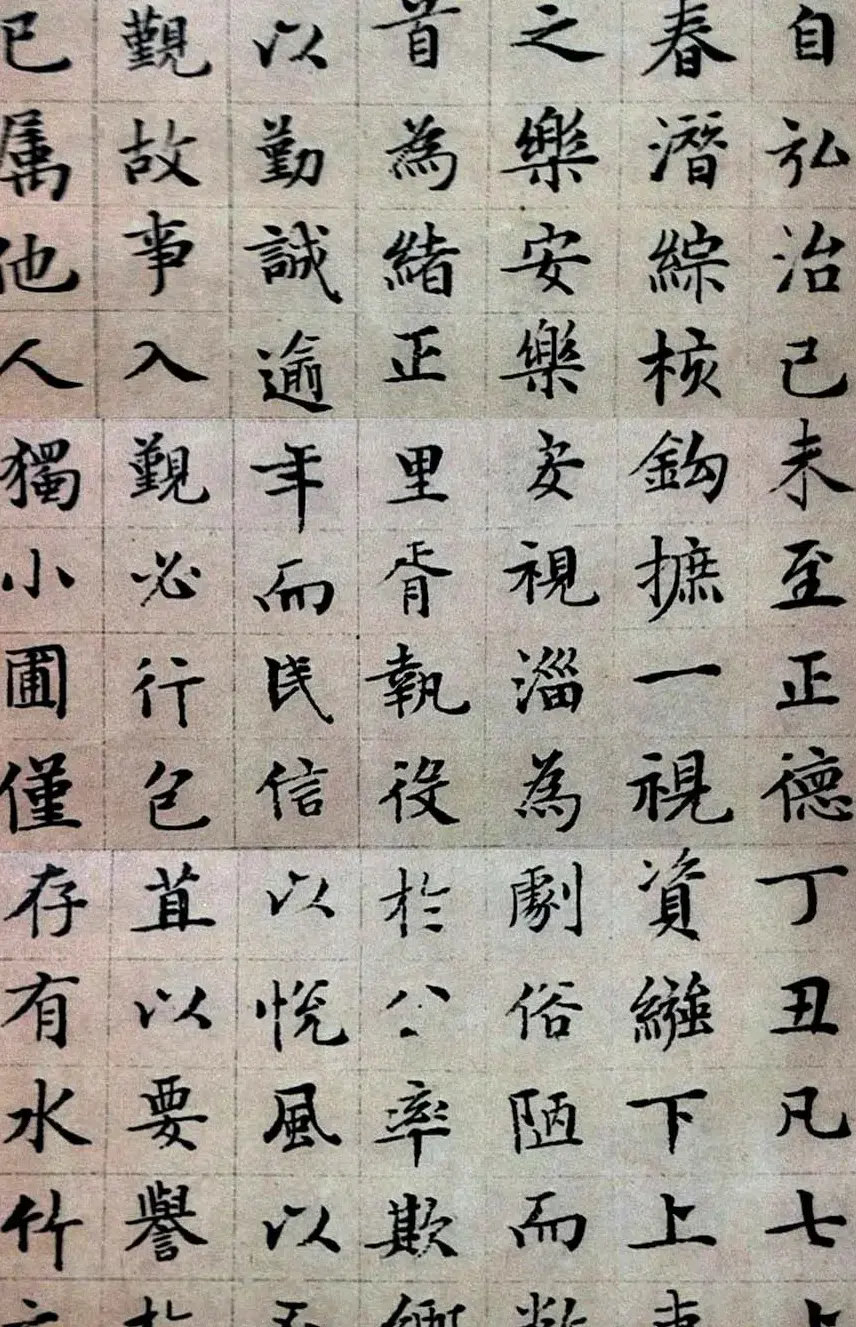 自弘治己未至正德丁丑凡七
春潛綜核鈎摭一視資繩下上
之樂安樂安視淄為劇俗陋而
首為緒正里胥執役於公率欺
以勤誠逾年而民信以悅風以
覲故事入覲必行包苴以要譽
已属他人獨小圃僅存有水竹